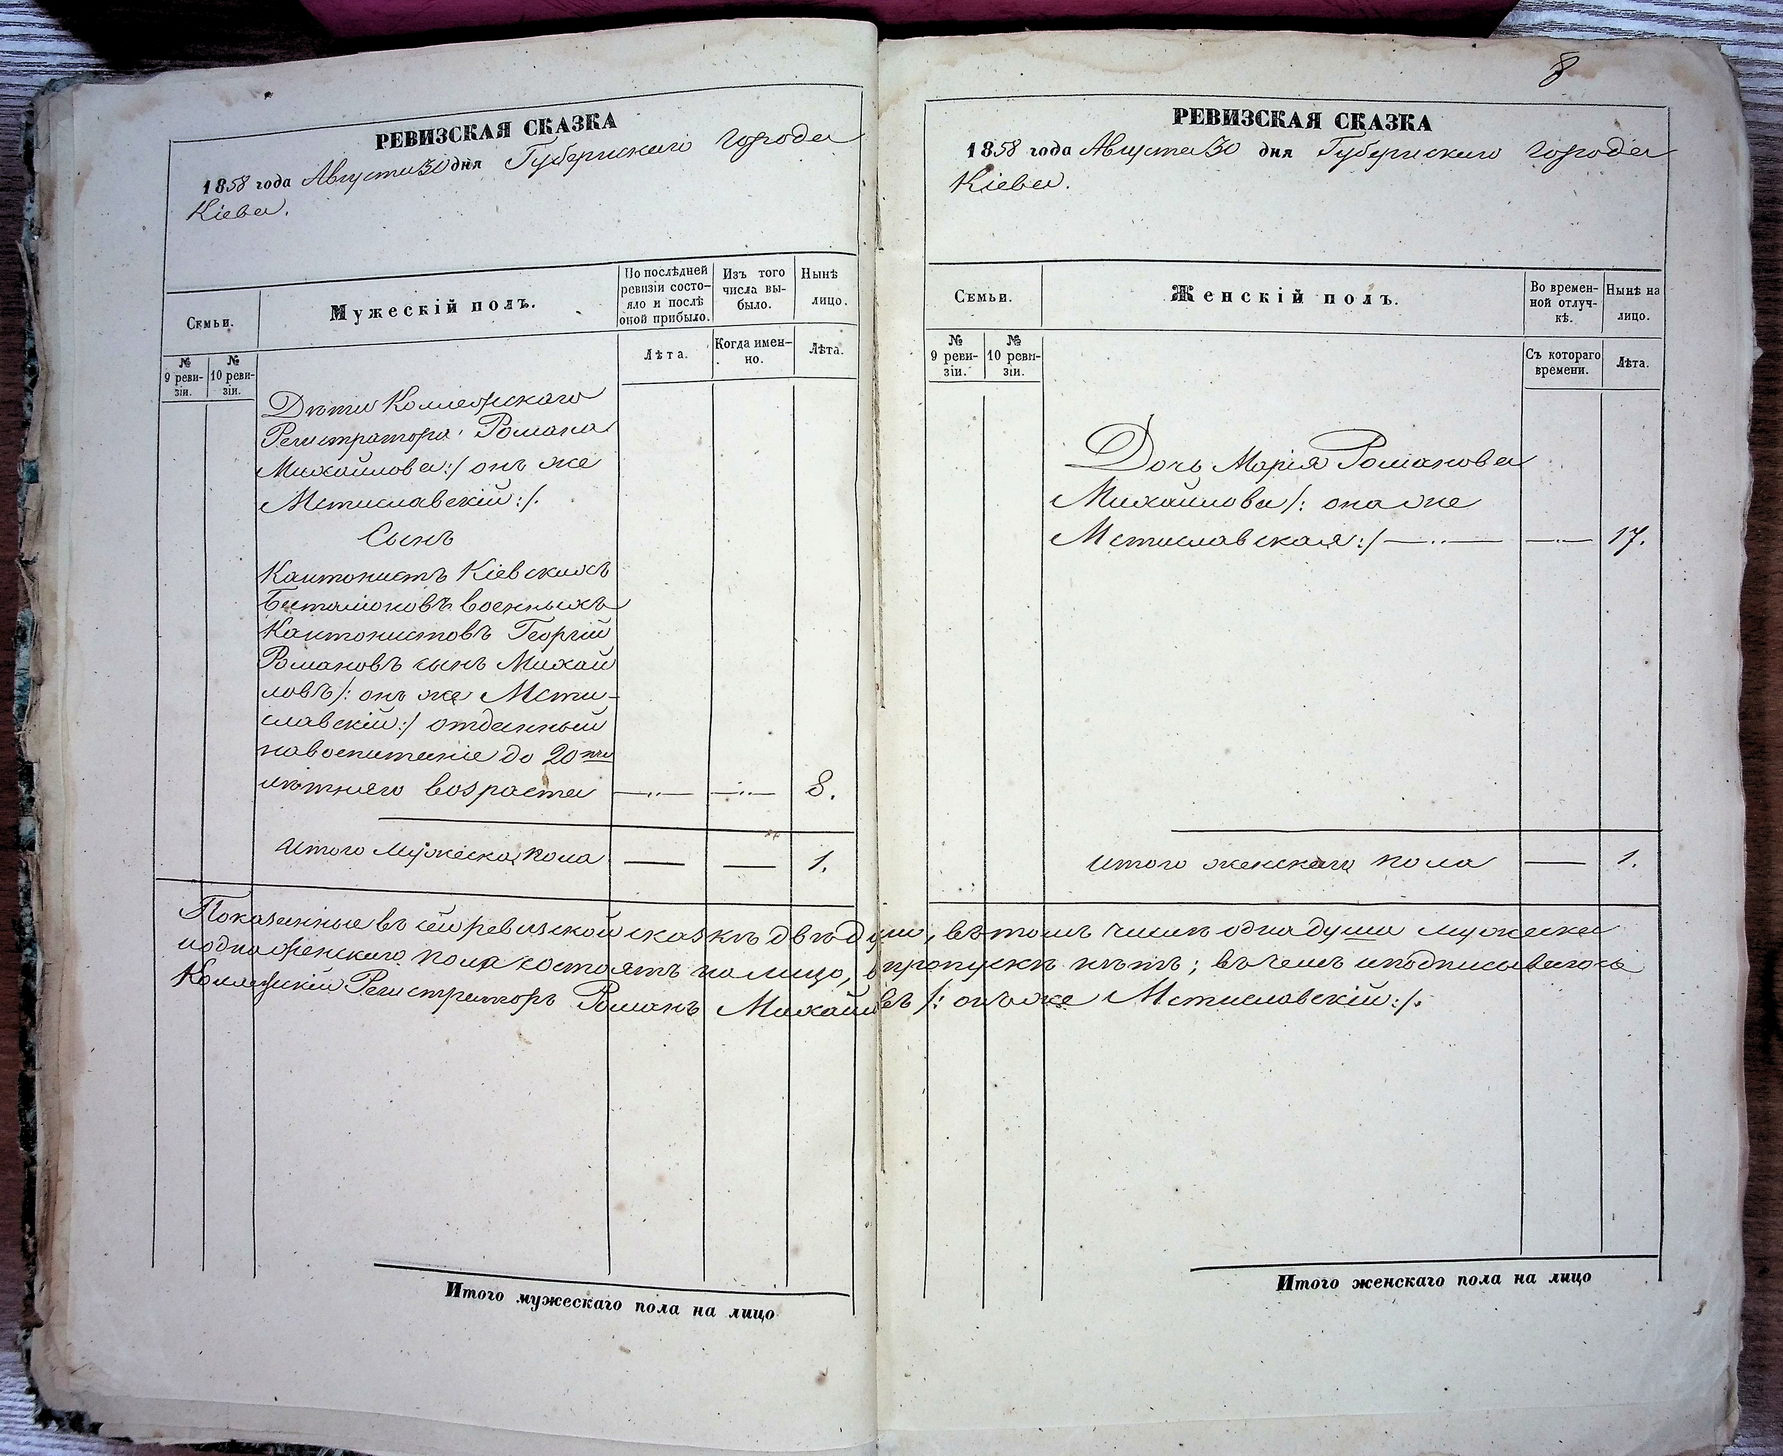 РЕВИЗСКАЯ СКАЗКА
1858 года Августа 30 дня Губернскаго города
Кіева.
Семьи.
Мужескій полъ.
По послѣдней
ревизіи состо-
яло и послѣ
оной прибыло.
Изъ того
числа вы-
было.
Нынѣ
лицо.
№
9 реви-
зіи.
№
10 реви-
зіи.
Лѣта.
Когда имен-
но.
Лѣта.
Дѣти Коллежскаго
Регистратора Романа
Михайлова :/ онъ же
Мстиславскій :/.
Сынъ
Кантонистъ Кіевскихъ
Баталіоновъ военныхъ
Кантонистовъ Георгій
Романовъ сынъ Михай
ловъ /: онъ же Мсти-
славскій :/ отданный
на воспитаніе до 20ти
лѣтняго возраста —..— —..— 8.
Итого мужеска пола — — 1.
8
РЕВИЗСКАЯ СКАЗКА
1858 года Августа 30 дня Губернскаго города
Кіева.
Семьи.
Женскій полъ.
Во времен-
ной отлуч-
кѣ.
Нынѣ на
лицо.
№
9 реви-
зіи.
№
10 реви-
зіи.
Съ котораго
времени.
Лѣта.
Дочь Марія Романова
Михайлова /: она же
Мстиславская :/ —..— —..— 17.
Итого женскаго пола — 1.
Показанные въ сей ревизской сказкѣ двѣ души, въ томъ числѣ одна душа мужеска
и одна женскаго пола состоятъ на лицо, пропускъ нѣтъ; въ чемъ и подписываюсь
Коллежскій Регистраторъ Романъ Михайловъ /: онъ же Мстиславскій :/.
Итого мужескаго пола на лицо
Итого женскаго пола на лицо